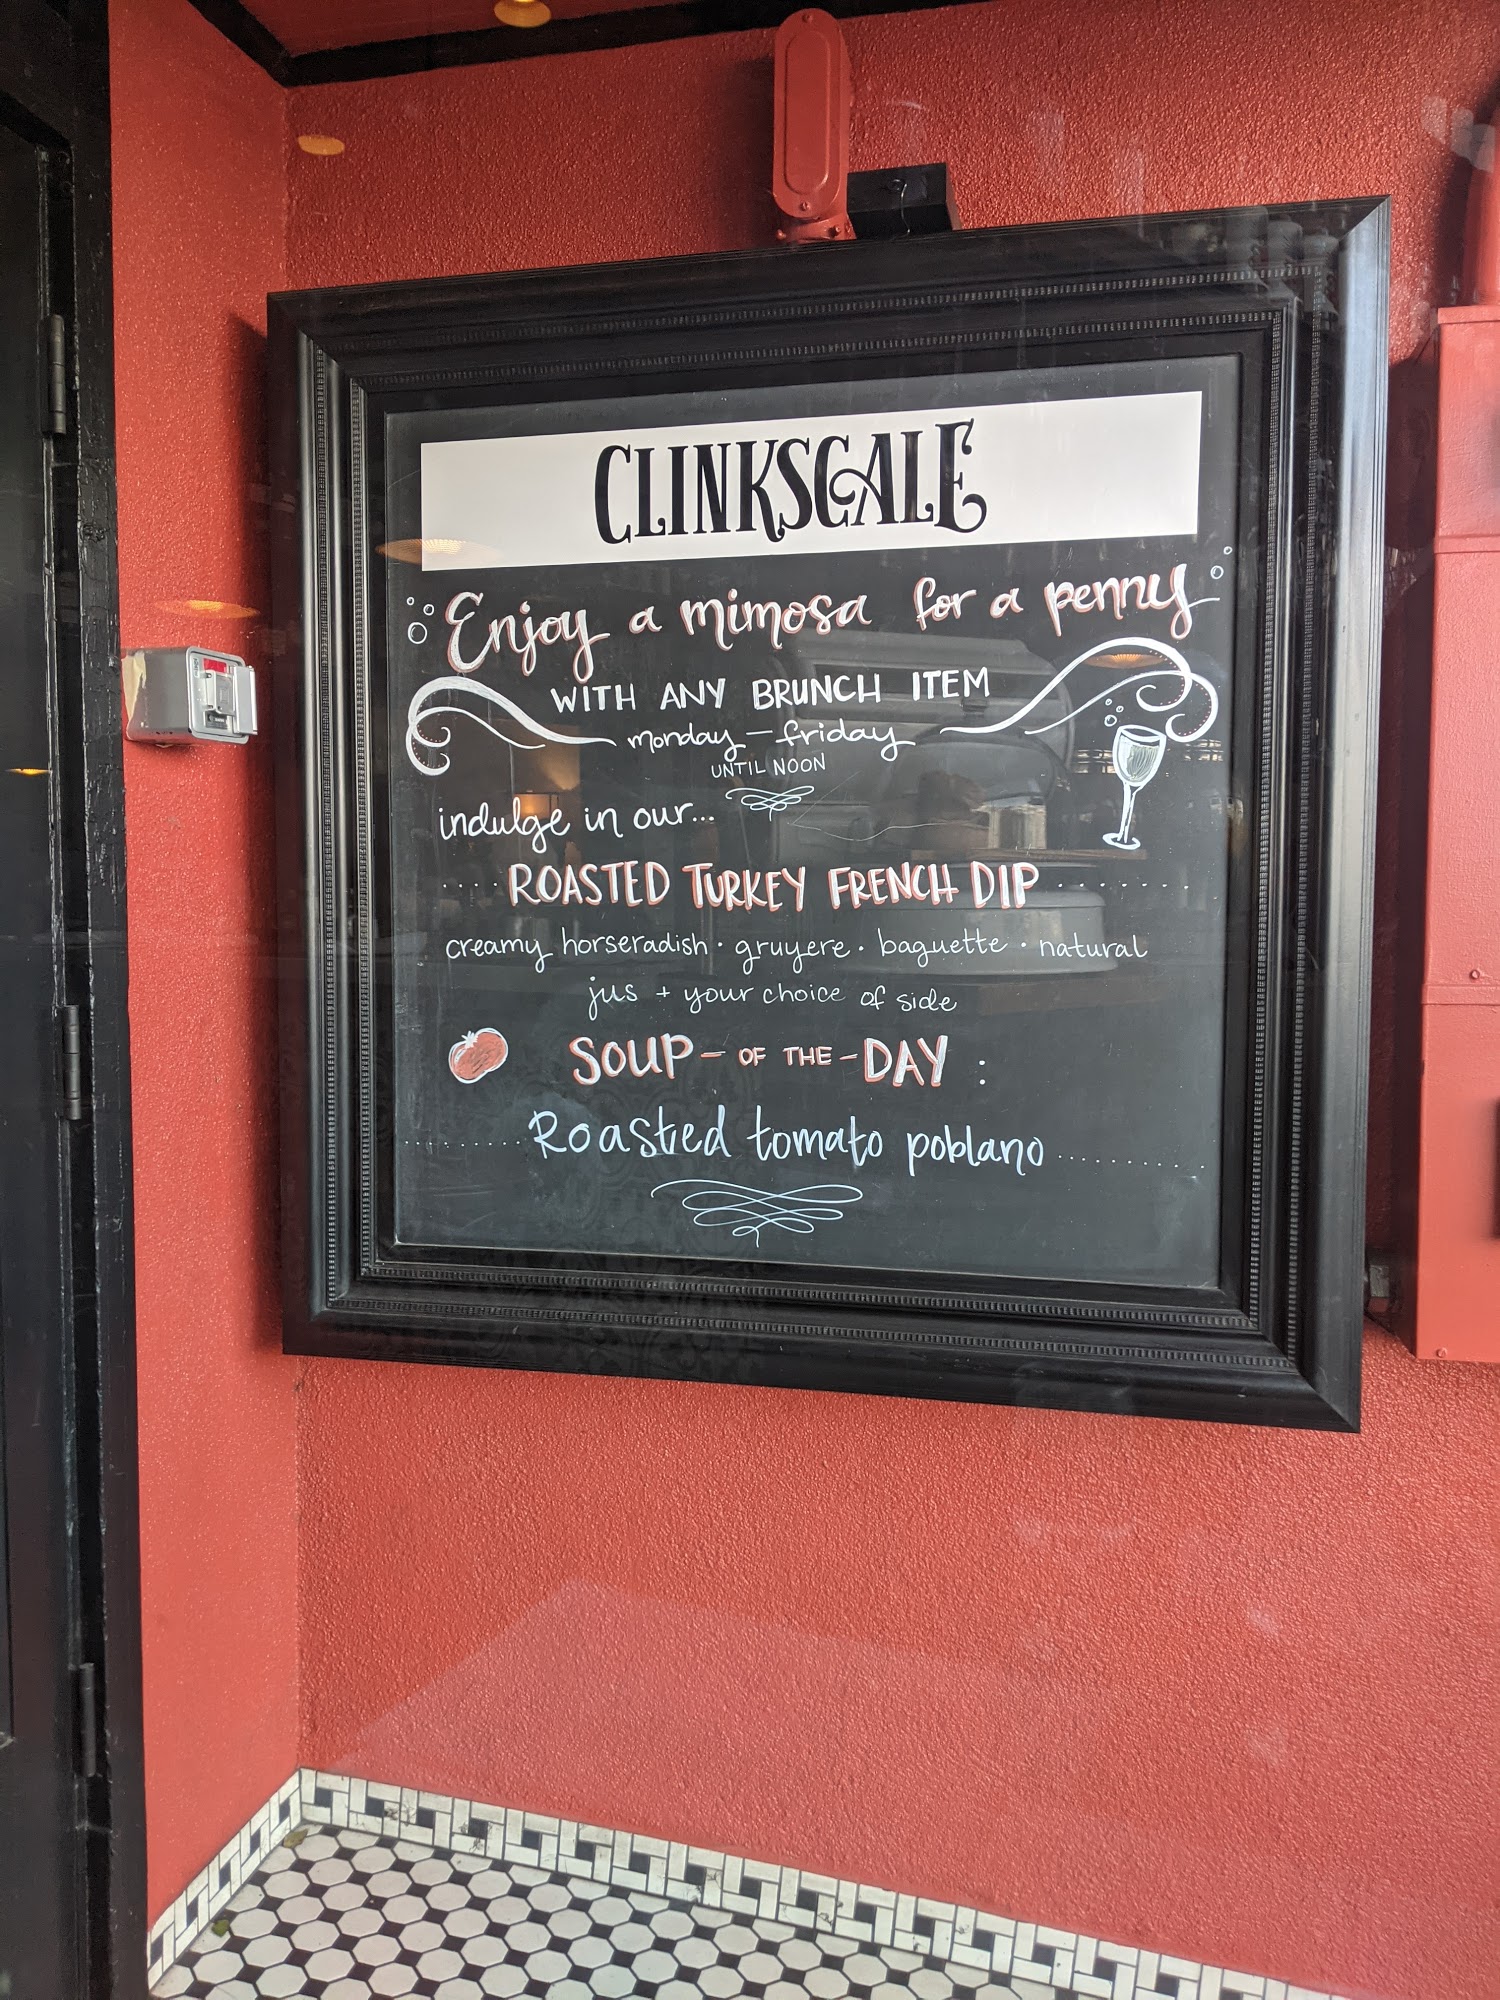 CLINKSCALE
Enjoy a mimosa for a penny
WITH ANY BRUNCH ITEM
monday - friday
UNTIL NOON
indulge in our...
ROASTED TURKEY FRENCH DIP
creamy horseradish · gruyere · baguette · natural
jus + your choice of side
SOUP - OF THE - DAY :
Roasted tomato poblano